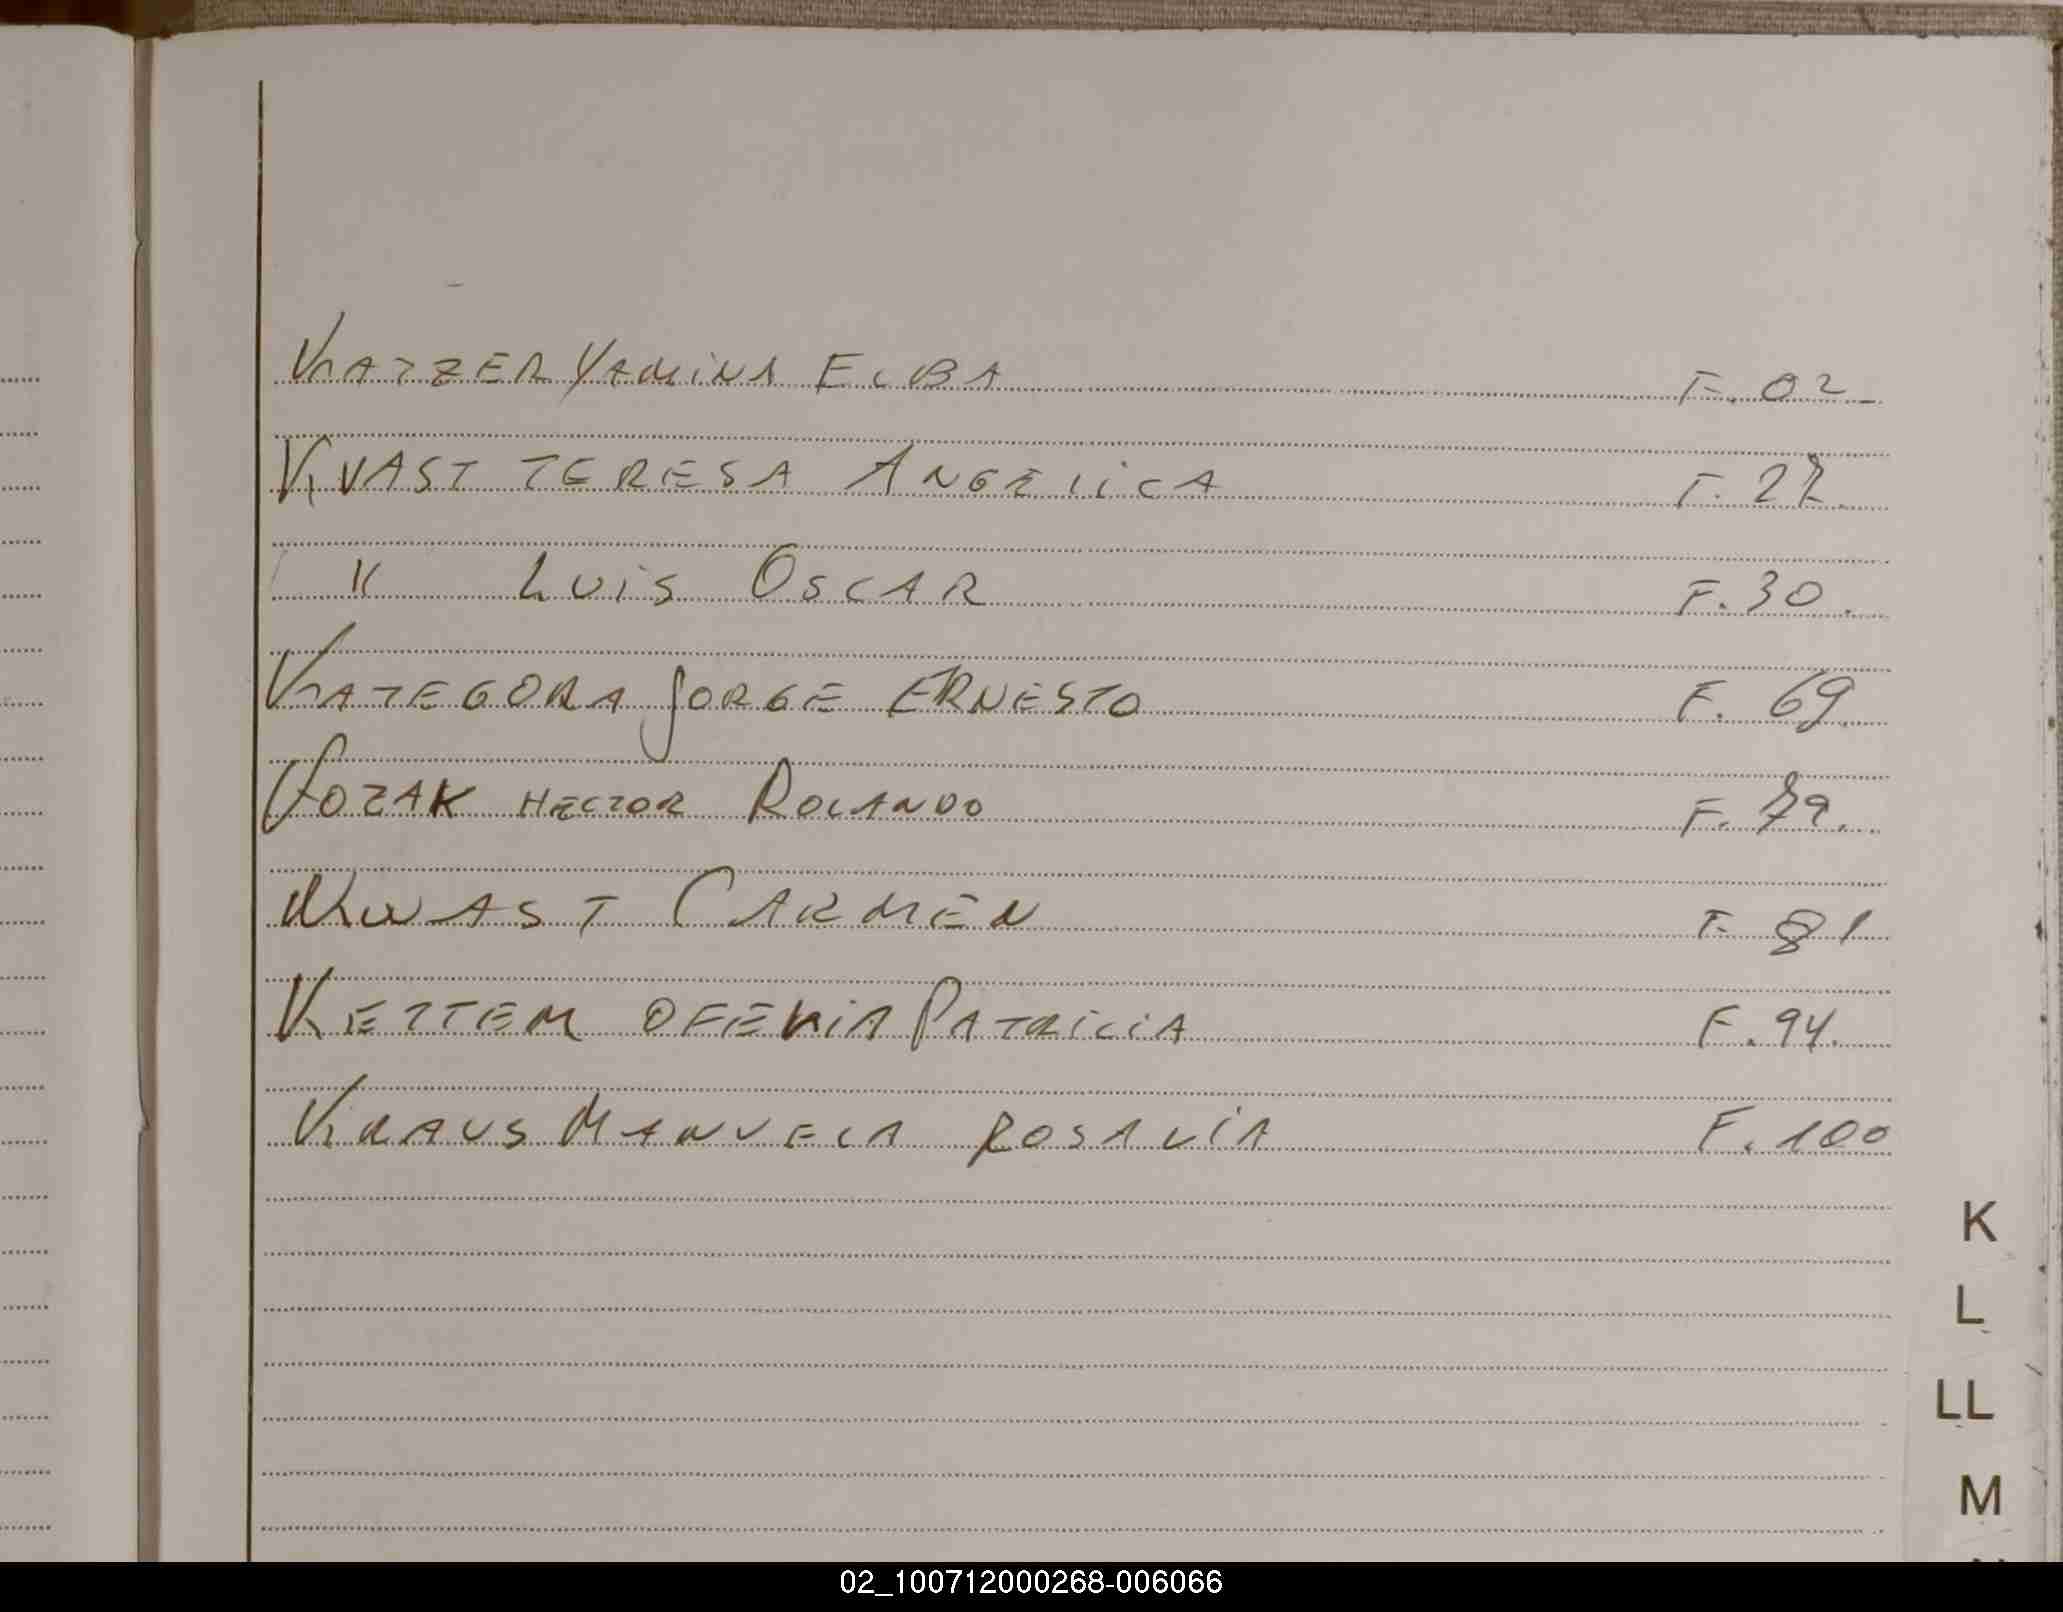 KATZER YAMINA ELBA F. 02
KVAST TERESA ANGELICA F. 27
" LUIS OSCAR F. 30.
KATEGORA JORGE ERNESTO F. 69.
KOZAK HECTOR ROLANDO F. 79.
KWAST CARMEN F. 81
KETTEM OFELIA PATRICIA F. 94.
KRAUS MANUELA ROSALIA F. 100
K
L
LL
M
02_100712000268-006066